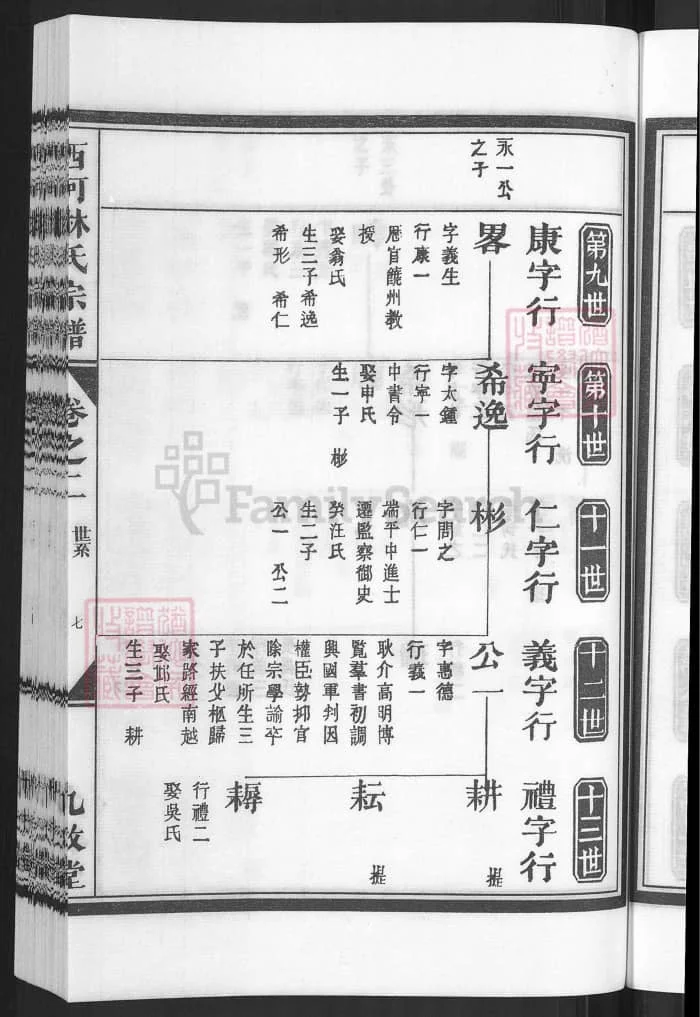 永一公
之子
第九世
康字行
畧
字義生
行康一
歷官饒州教
授
娶翁氏
生三子希逸
希形 希仁
第十世
寧字行
希逸
字太鍾
行寧一
中書令
娶申氏
生一子 彬
十一世
仁字行
彬
字問之
行仁一
端平中進士
遷監察御史
娶汪氏
生二子
公一 公二
十二世
義字行
公一
字惠德
行義一
耿介高明博
覽羣書初調
興國軍判因
權臣勢抑官
除宗學諭卒
於任所生三
子扶父柩歸
家路經南越
娶邥氏
生三子 耕
十三世
禮字行
耕
提
耘
提
耨
行禮二
娶吳氏
西河林氏宗譜
卷之二
世系
七
九牧堂
FamilySearch